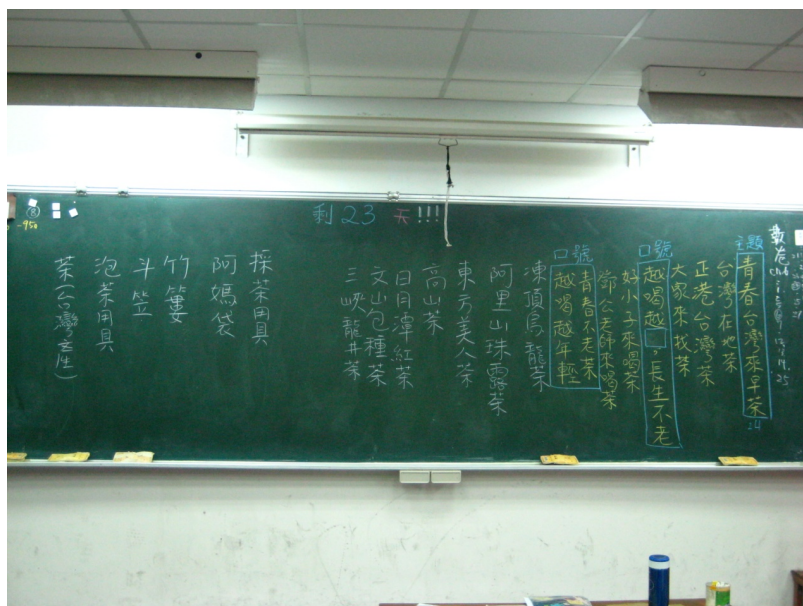 剩 23 天 !!!
主題
青春台灣來早茶
24
台灣在地茶
正港台灣茶
大家來找茶
口號
越喝越□，長生不老
好小子來喝茶
鄧公老師來喝茶
口號
青春不老茶
越喝越年輕
凍頂烏龍茶
阿里山珠露茶
東方美人茶
高山茶
日月潭紅茶
文山包種茶
三峽龍井茶
採茶用具
阿媽袋
竹簍
斗笠
泡茶用具
茶(台灣產)
-950